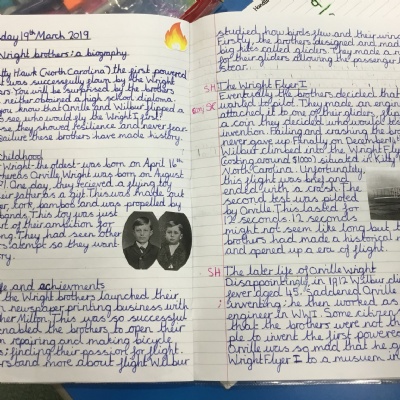 day 19th March 2019
Wright brothers: a biography
Hawk (North Carolina) the first powered
was successfully flown by the Wright
You will be surprised the brothers
neither obtained a high school diploma.
you know that Orville and Wilbur flipped a
see, who would fly the Wright
they showed resilience and never fear
these brothers have made history.
Childhood
Wright - the oldest - was born on April 16th
Orville Wright was born on August
One day, they received a flying toy
father as a gift. This was made out
cork, bamboo and was propelled by
bands. This toy was just
of their ambition for
They had seen other
attempt so they want
and achievments
the Wright brothers launched their
newspaper printing business with
This was so successful
enabled the brothers to open their
repairing and making bicycle
finding their passion for flight.
and more about flight Wilbur
studied how birds flew and their wing
Firstly, the brothers designed and made
big kites called gliders. They made a
for their gliders allowing the passenger to
steer.
SH The Wright Flyer I
Eventually the brothers decided that
wanted to pilot. They made an engine
attached it to one of their gliders.
a coin, they decided who would test
invention. Failing and crashing the bro
never gave up. Finally on December
Wilbur climbed into the Wright Fly
(costing around $1000) situated in Kitty
North Carolina. Unfortunately,
this flight was brief and
ended with a crash. The
second test was piloted
by Orville. This lasted for
12 seconds. 12 seconds
might not seem like long but t
brothers had made a historical
and opened up a era of flight.
SH The later life of Orville Wright
Disappointingly, in 1912 Wilbur di
fever aged 45. Saddened, Orville
inventing; he then worked as
engineer in WWI. Some citizen
that the brothers were not th
ple to invent the first powered
Orville was so mad that he
Wright Flyer I to a musuem in